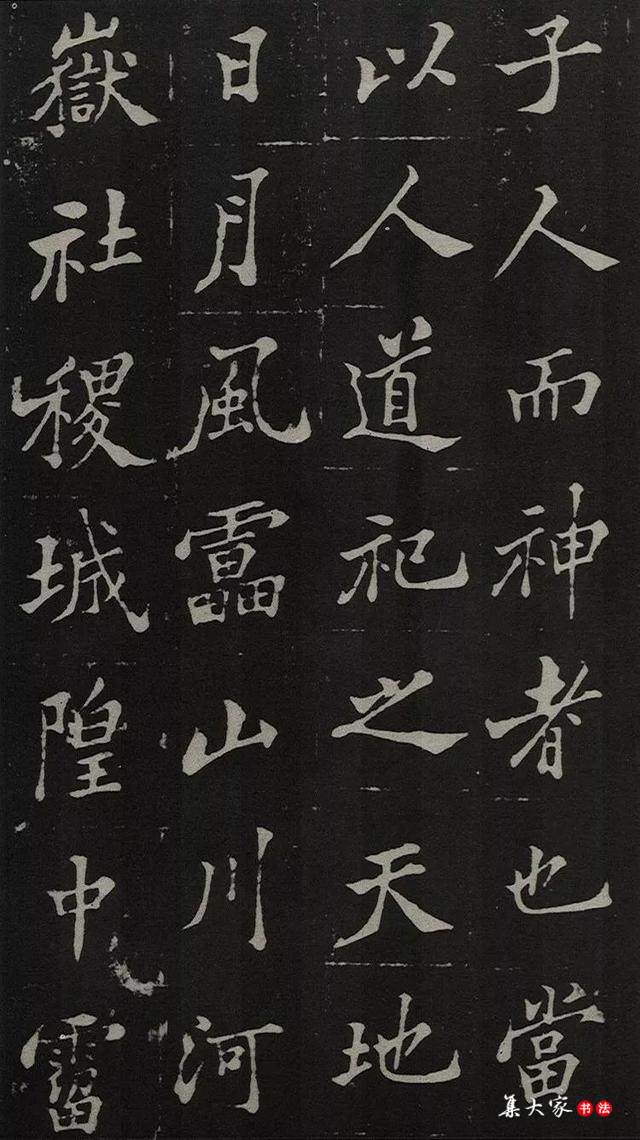 子人而神者也當
以人道祀之天地
日月風靁山川河
嶽社稷城隍中霤
集大家书法